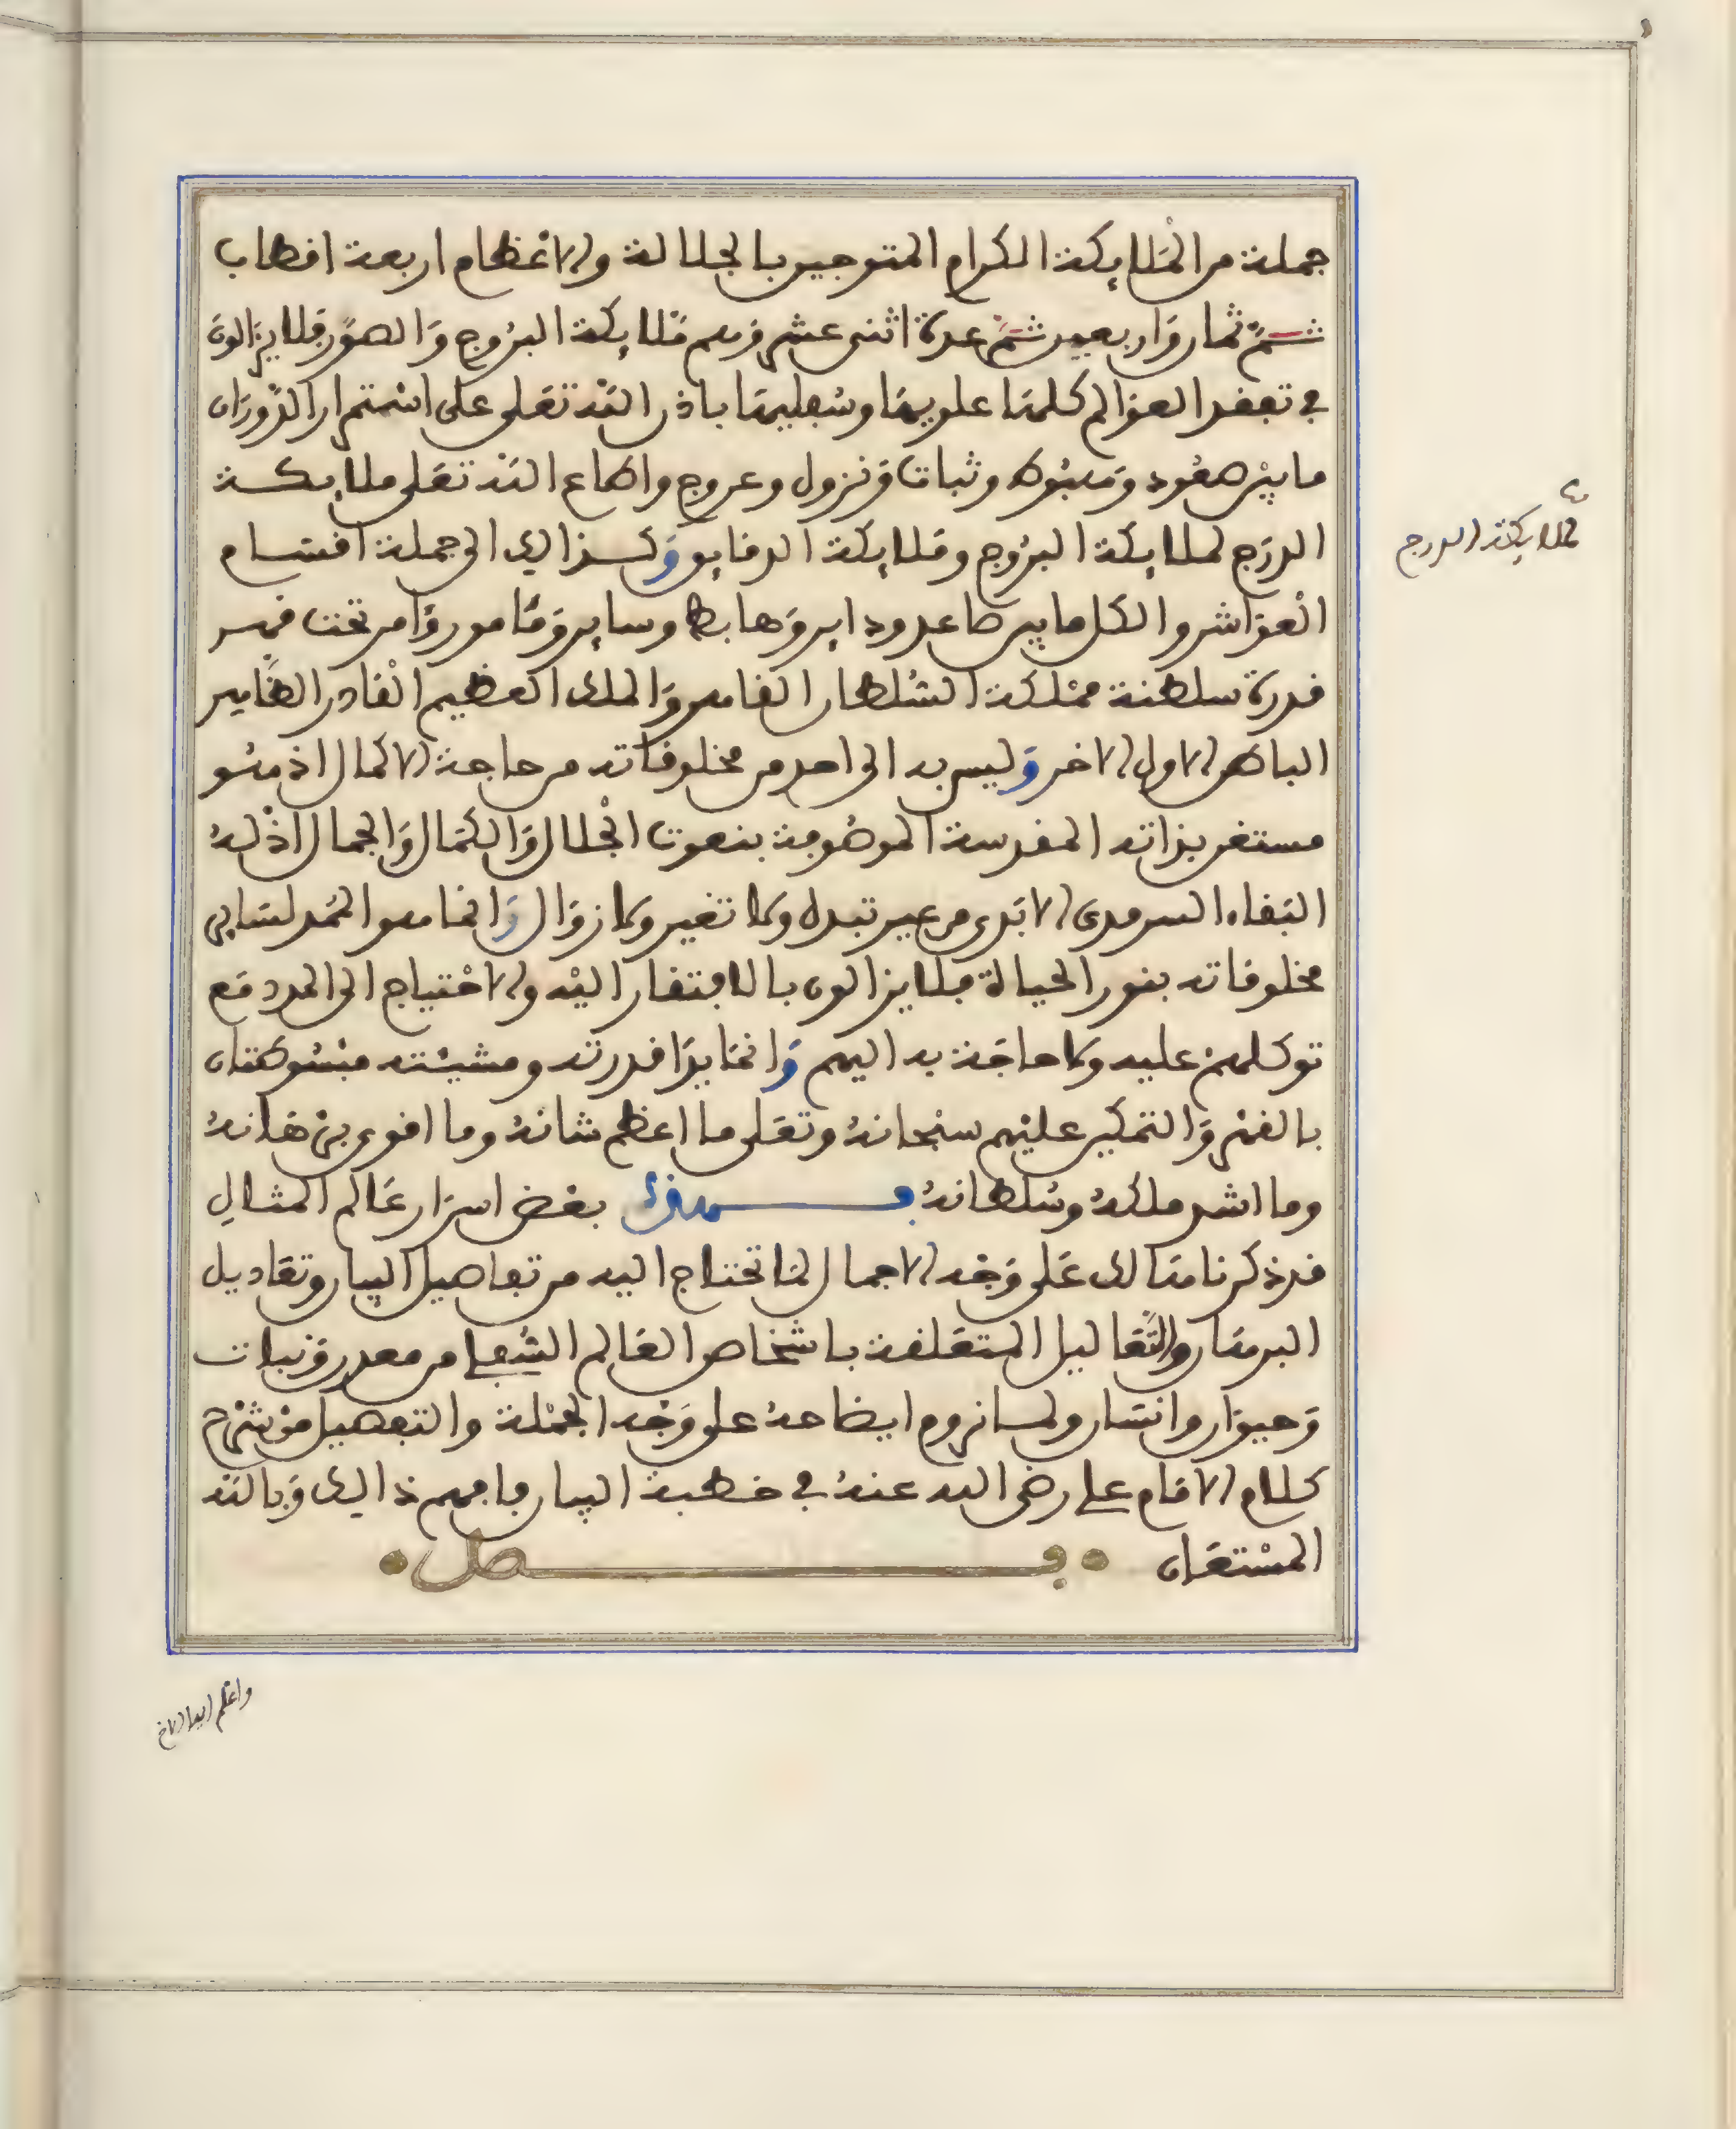 جملة من الملايكة الكرام المتوجين بالجلالة والاعظام اربعة اقطاب
ثم ثمان واربعين ثم عدة اثنى عشر وهم ملايكة البروج والصور فلا يزالون
في تفقد العوالم كلها علويها وسفليها باذن الله تعلى على استمرار الدوران
ما بين صعود وهبوط وثبات ونزول وعروج واطاع الله تعلى ملايكة
الدرج لملايكة البروج وملايكة الدقايق وكذالك الى جملة اقسام
العواشر والكل ما بين صاعد ودابر وهابط وساير ومامور وامر تحت قهر
قدرة سلطنة مملكة السلطان القاهر والملك العظيم القادر الظاهر
الباطن الاول الاخر وليس به الى احد من مخلوقاته من حاجة لاكمال اذ هو
مستغن بذاته المقدسة الموصوفة بنعوت الجلال والكمال والجمال اذ له
البقاء السرمدى الابدى من غير تبدل ولا تغير ولا زوال وانما هو الممد لساير
مخلوقاته بنور الحياة فلا يزالون بالافتقار اليه والاحتياج الى المدد مع
توكلهم عليه ولا حاجة به اليهم وانما يدا قدرته ومشيئته مبسوطتان
بالقهر والتمكين عليهم سبحانه وتعلى ما اعظم شانه وما اقوى برهانه
وما اشد ملكه وسلطانه فهذه بعض اسرار عالم المثال
قد ذكرنا هنالك على وجه الاجمال لما تحتاج اليه من تفاصيل البيان وتعاديل
البرهان والتعاليل المتعلقة باشخاص العالم السفلي من معدن ونبات
وحيوان وانسان ولسنا نروم ايضاحه على وجه الجملة والتفصيل من شرح
كلام الامام علي رضى الله عنه في خطبة البيان فافهم ذالك وبالله
المستعان فصل
ملايكة الدرج
واعلم ايها الاخ